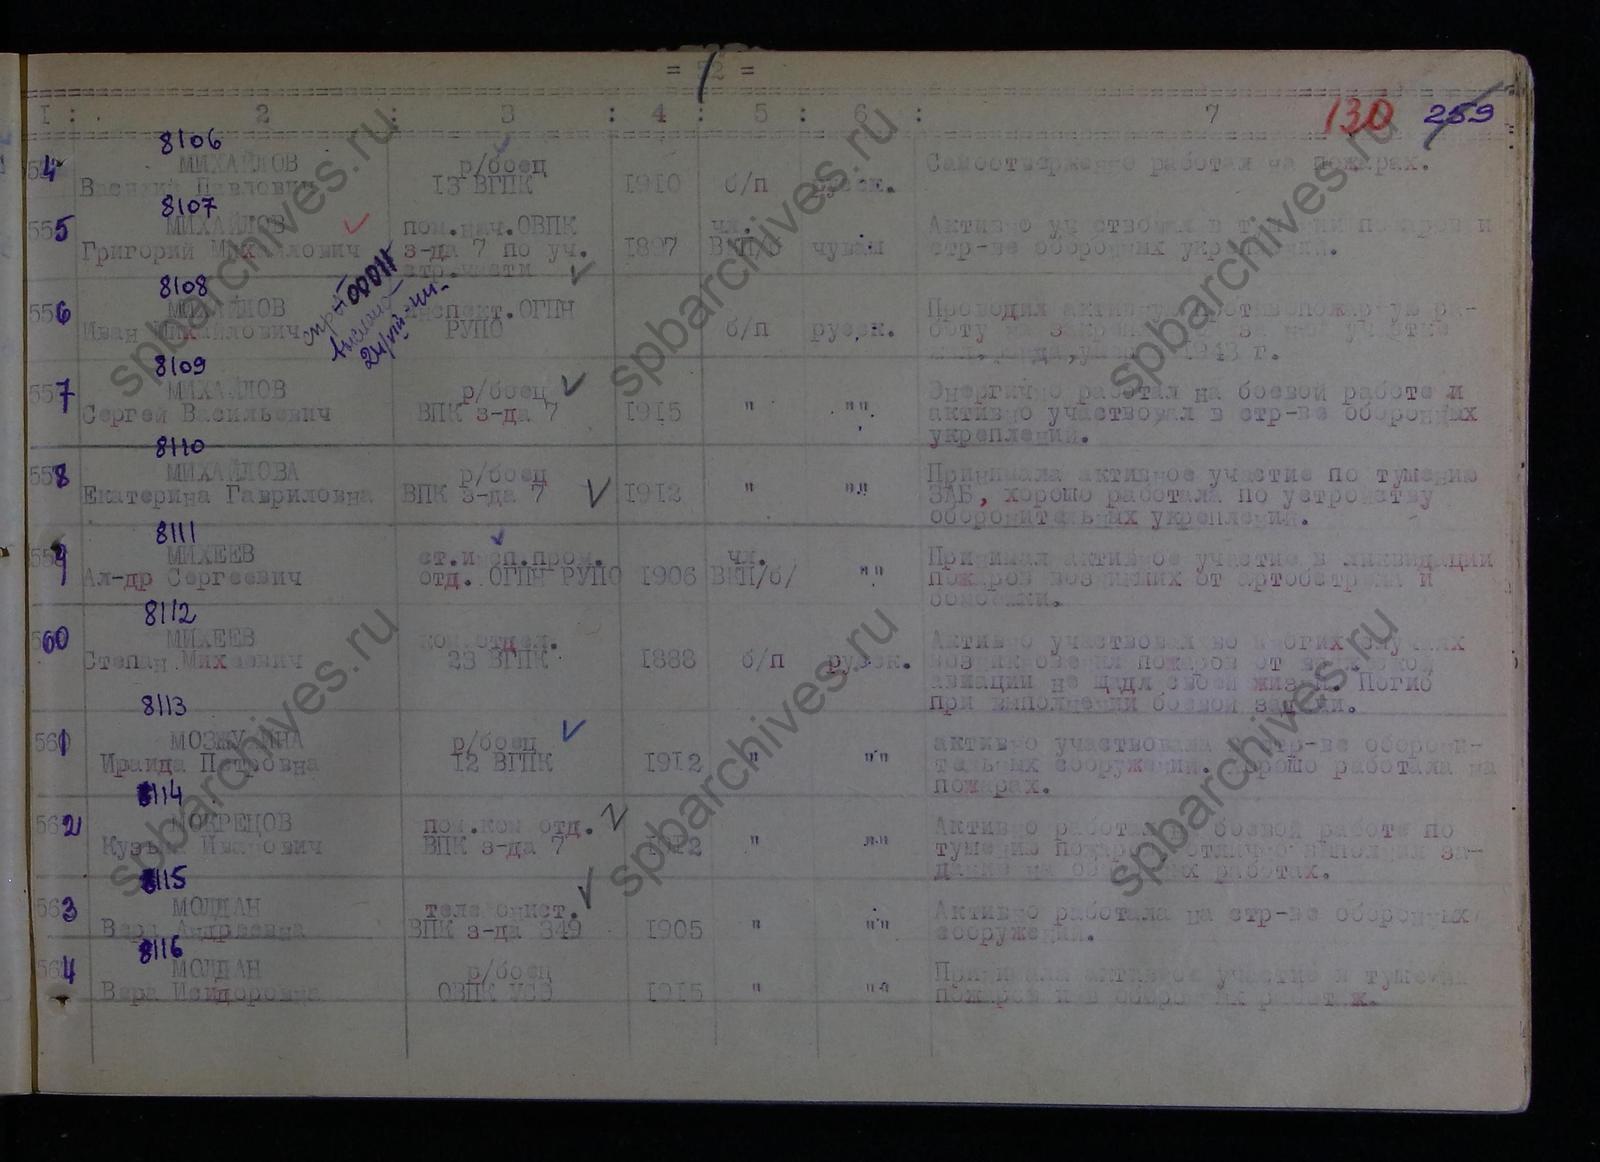 = 52 =
I : 2 : 3 : 4 : 5 : 6 : 7
130 259
8106
554 МИХАЙЛОВ р/боец Самоотверженно работал на пожарах.
Василий Павлович 13 ВГПК 1910 б/п русск.
8107
555 МИХАЙЛОВ пом.нач.ОВПК чл. Активно участвовал в тушении пожаров и
Григорий Михайлович з-да 7 по уч. 1897 ВКП/б чуваш стр-ве оборонных укреплений.
стр.части
8108
556 МИХАЙЛОВ инспект.ОГПН Проводил активную противопожарную ра-
Иван Михайлович РУПО б/п русск. боту на закрепленном за ним участке
1943 г.
8109
557 МИХАЙЛОВ р/боец Энергично работал на боевой работе и
Сергей Васильевич ВПК з-да 7 1915 " "" активно участвовал в стр-ве оборонных
укреплений.
8110
558 МИХАЙЛОВА р/боец Принимала активное участие по тушению
Екатерина Гавриловна ВПК з-да 7 1912 " "" ЗАБ, хорошо работала по устройству
оборонительных укреплений.
8111
559 МИХЕЕВ ст.инсп.пром. чл. Принимал активное участие в ликвидации
Ал-др Сергеевич отд. ОГПН РУПО 1906 ВКП/б/ "" пожаров возникших от артобстрела и
бомбежки.
8112
560 МИХЕЕВ ком.отдел. Активно участвовал во многих случаях
Степан Михеевич 23 ВГПК 1888 б/п русск. возникновения пожаров от вражеской
авиации не щадя своей жизни. Погиб
при выполнении боевой задачи.
8113
561 МОЗЖУХИНА р/боец активно участвовала в стр-ве оборони-
Ираида Петровна 12 ВГПК 1912 " "" тельных сооружений. Хорошо работала на
пожарах.
8114
562 МОКРЕЦОВ пом.ком отд. Активно работал на боевой работе по
Кузьма Иванович ВПК з-да 7 1912 " "" тушению пожаров, отлично выполнял за-
дание на оборонных работах.
8115
563 МОЛДАН телефонист. Активно работала на стр-ве оборонных
Вера Андреевна ВПК з-да 349 1905 " "" сооружений.
8116
564 МОЛДАН р/боец Принимала активное участие в тушении
Вера Исидоровна ОВПК 1915 " "" пожаров и в оборонных работах.
spbarchives.ru
spbarchives.ru
spbarchives.ru
spbarchives.ru
spbarchives.ru
spbarchives.ru